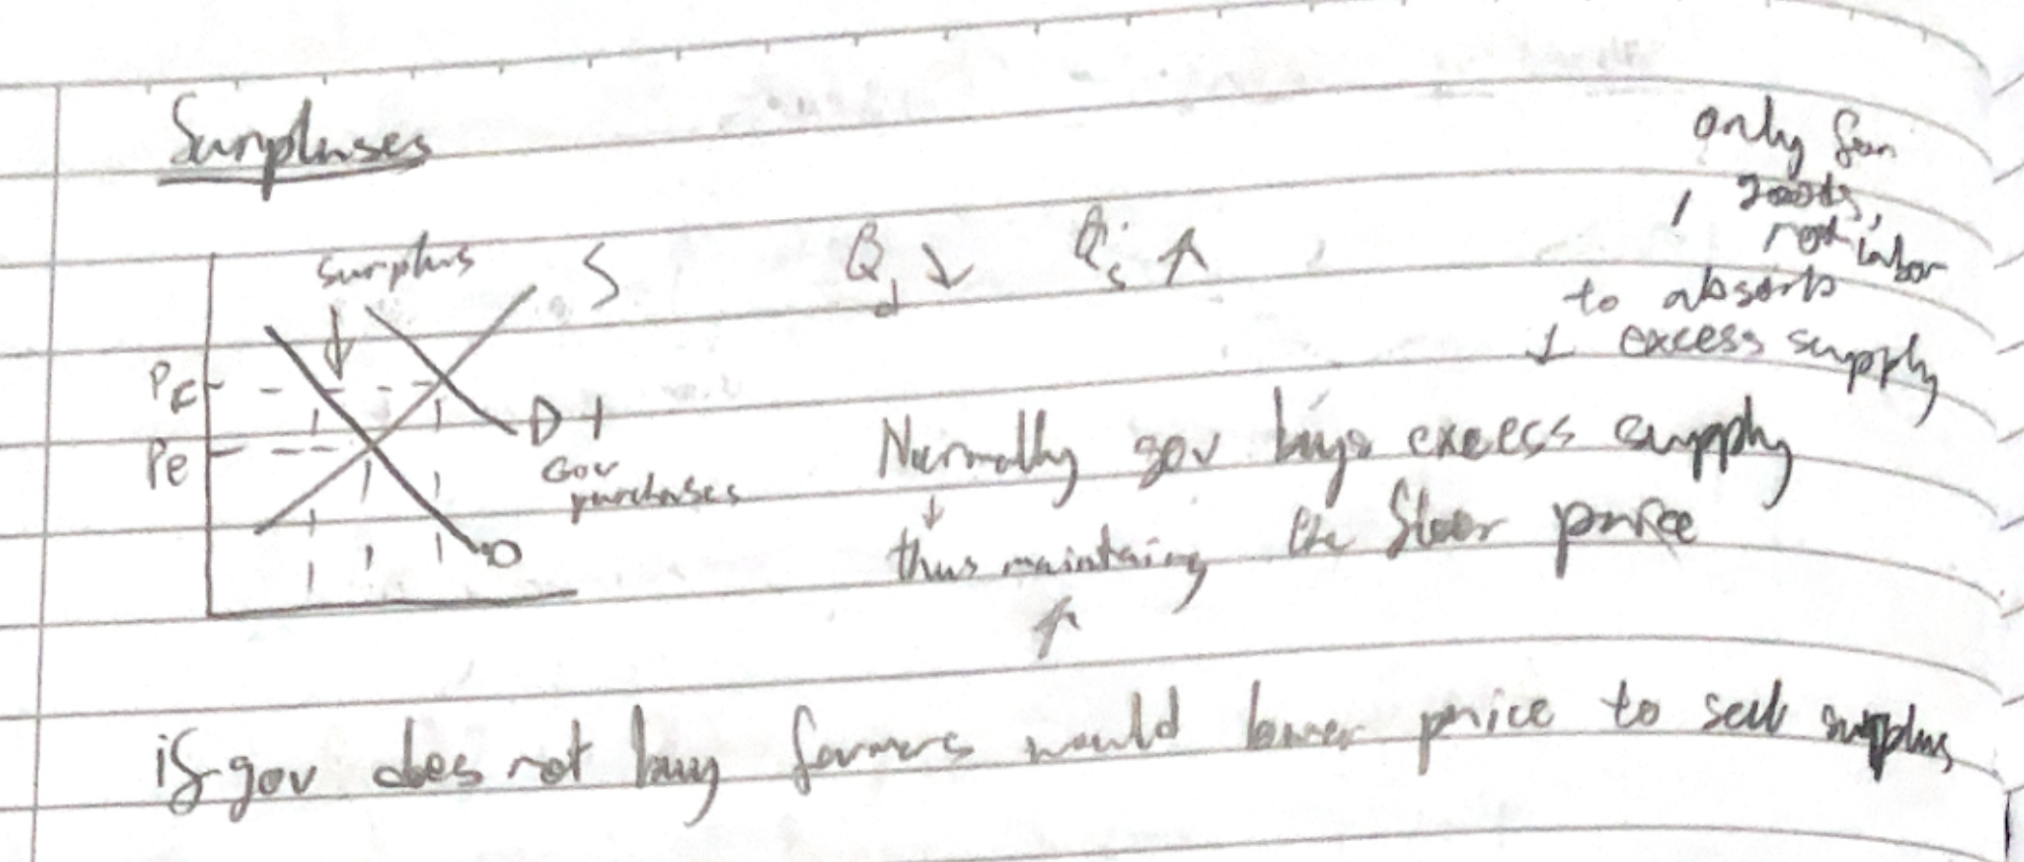 Surpluses
surplus
S
Qd ↓ Qs ↑
only for
goods,
not labor
to absorb
↓ excess supply
PF
Pe
D +
Gov
purchases
D
Normally gov buys excess supply
↓
thus maintaining the floor price
↑
if gov does not buy farmers would lower price to sell surplus